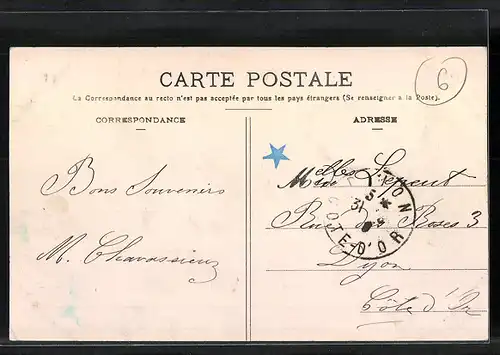 CARTE POSTALE
La Correspondance au recto n'est pas acceptée par tous les pays étrangers (Se renseigner a la Poste).
CORRESPONDANCE
ADRESSE
6
Bons Souvenirs
M. Chavassieux
Mdlles
Rue des Roses 3
Dijon
Côte d'Or
DIJON
31
COTE-D'OR